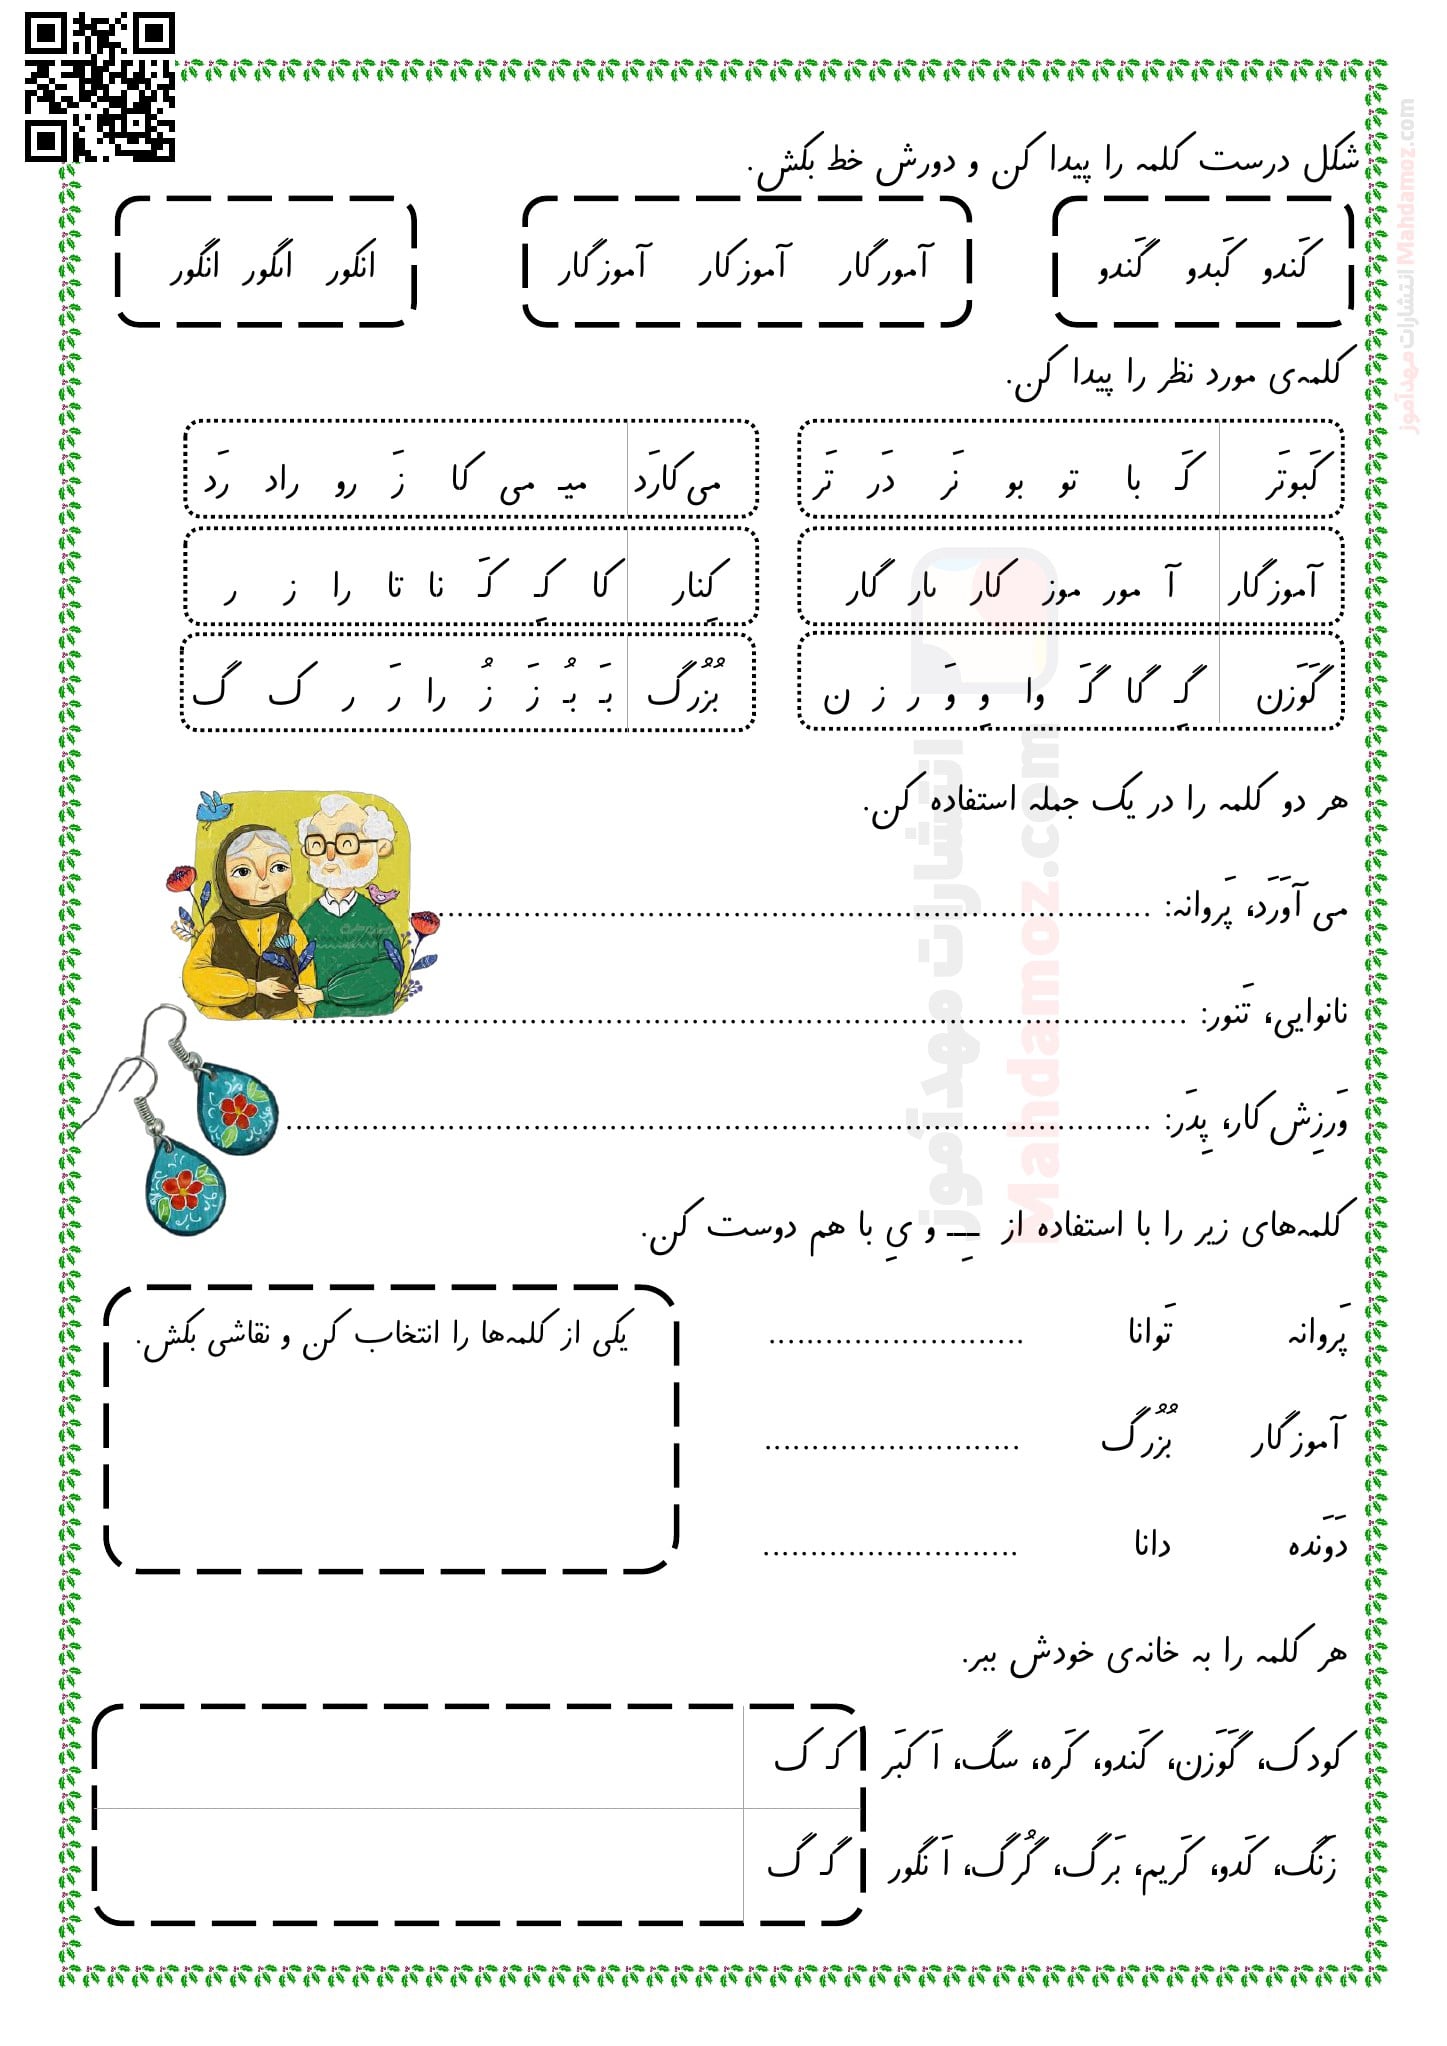 شکل درست کلمه را پیدا کن و دورش خط بکش.
کَندو کَبدو گَندو
آمورگار آموزکار آموزگار
اَنکور اَنگور اَنگور
کلمه‌ی مورد نظر را پیدا کن.
کَبوتَر کَـ با تو بو نَر دَر تَر
می‌کارَد میـ می کا زَ رو راد رَد
آموزگار آ مور موز کار نار گار
کِنار کا کِـ کَـ نا تا را ز ر
گَوَزن گِـ گا گَـ وا وِ وَ ر ز ن
بُزُرگ بَـ بُـ زَ زُ را رَ ر ک گ
هر دو کلمه را در یک جمله استفاده کن.
می آوَرَد، پَروانه: ................................................................
نانوایی، تَنور: ................................................................
وَرزِش کار، پِدَر: ................................................................
کلمه‌های زیر را با استفاده از ـِـ و یِ با هم دوست کن.
یکی از کلمه‌ها را انتخاب کن و نقاشی بکش.
پَروانه تَوانا ...........................
آموزگار بُزُرگ ...........................
دَوَنده دانا ...........................
هر کلمه را به خانه‌ی خودش ببر.
کودک، گَوَزن، کَندو، کَره، سگ، اَکبَر
کـ ک
زَنگ، کَدو، کَریم، بَرگ، گُرگ، اَنگور
گـ گ
انتشارات مهدآموز
Mahdamoz.com
انتشارات مهدآموز
Mahdamoz.com